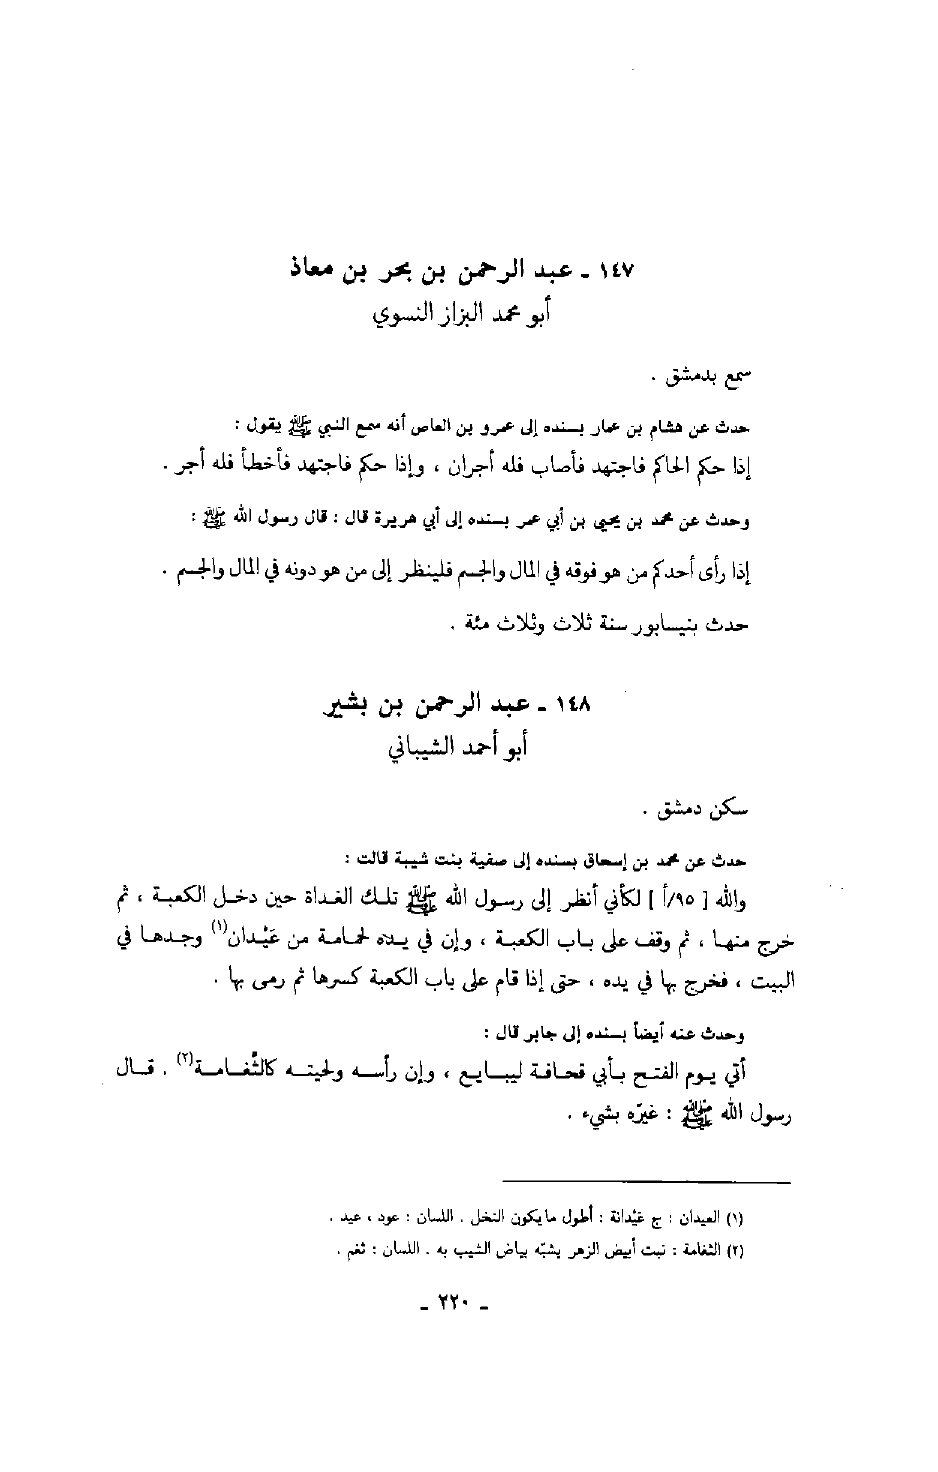 ١٤٧ ـ عبد الرحمن بن بحر بن معاذ
أبو محمد البزاز النسوي
سمع بدمشق .
حدث عن هشام بن عمار بسنده إلى عمرو بن العاص أنه سمع النبي ﷺ يقول :
إذا حكم الحاكم فاجتهد فأصاب فله أجران ، وإذا حكم فاجتهد فأخطأ فله أجر .
وحدث عن محمد بن يحيى بن أبي عمر بسنده إلى أبي هريرة قال : قال رسول الله ﷺ :
إذا رأى أحدكم من هو فوقه في المال والجسم فلينظر إلى من هو دونه في المال والجسم .
حدث بنيسابور سنة ثلاث وثلاث مئة .
١٤٨ ـ عبد الرحمن بن بشير
أبو أحمد الشيباني
سكن دمشق .
حدث عن محمد بن إسحاق بسنده إلى صفية بنت شيبة قالت :
والله [ ٩٥/أ ] لكأني أنظر إلى رسول الله ﷺ تلك الغداة حين دخل الكعبة ، ثم
خرج منها ، ثم وقف على باب الكعبة ، وإن في يده لحمامة من عَيْدان(١) وجدها في
البيت ، فخرج بها في يده ، حتى إذا قام على باب الكعبة كسرها ثم رمى بها .
وحدث عنه أيضاً بسنده إلى جابر قال :
أتي يوم الفتح بأبي قحافة ليبايع ، وإن رأسه ولحيته كالثُّغامة(٢) . قال
رسول الله ﷺ : غيّره بشيء .
(١) العيدان : ج عَيْدانة : أطول ما يكون النخل . اللسان : عود ، عيد .
(٢) الثغامة : نبت أبيض الزهر يشبّه بياض الشيب به . اللسان : ثغم .
ـ ٢٢٠ ـ